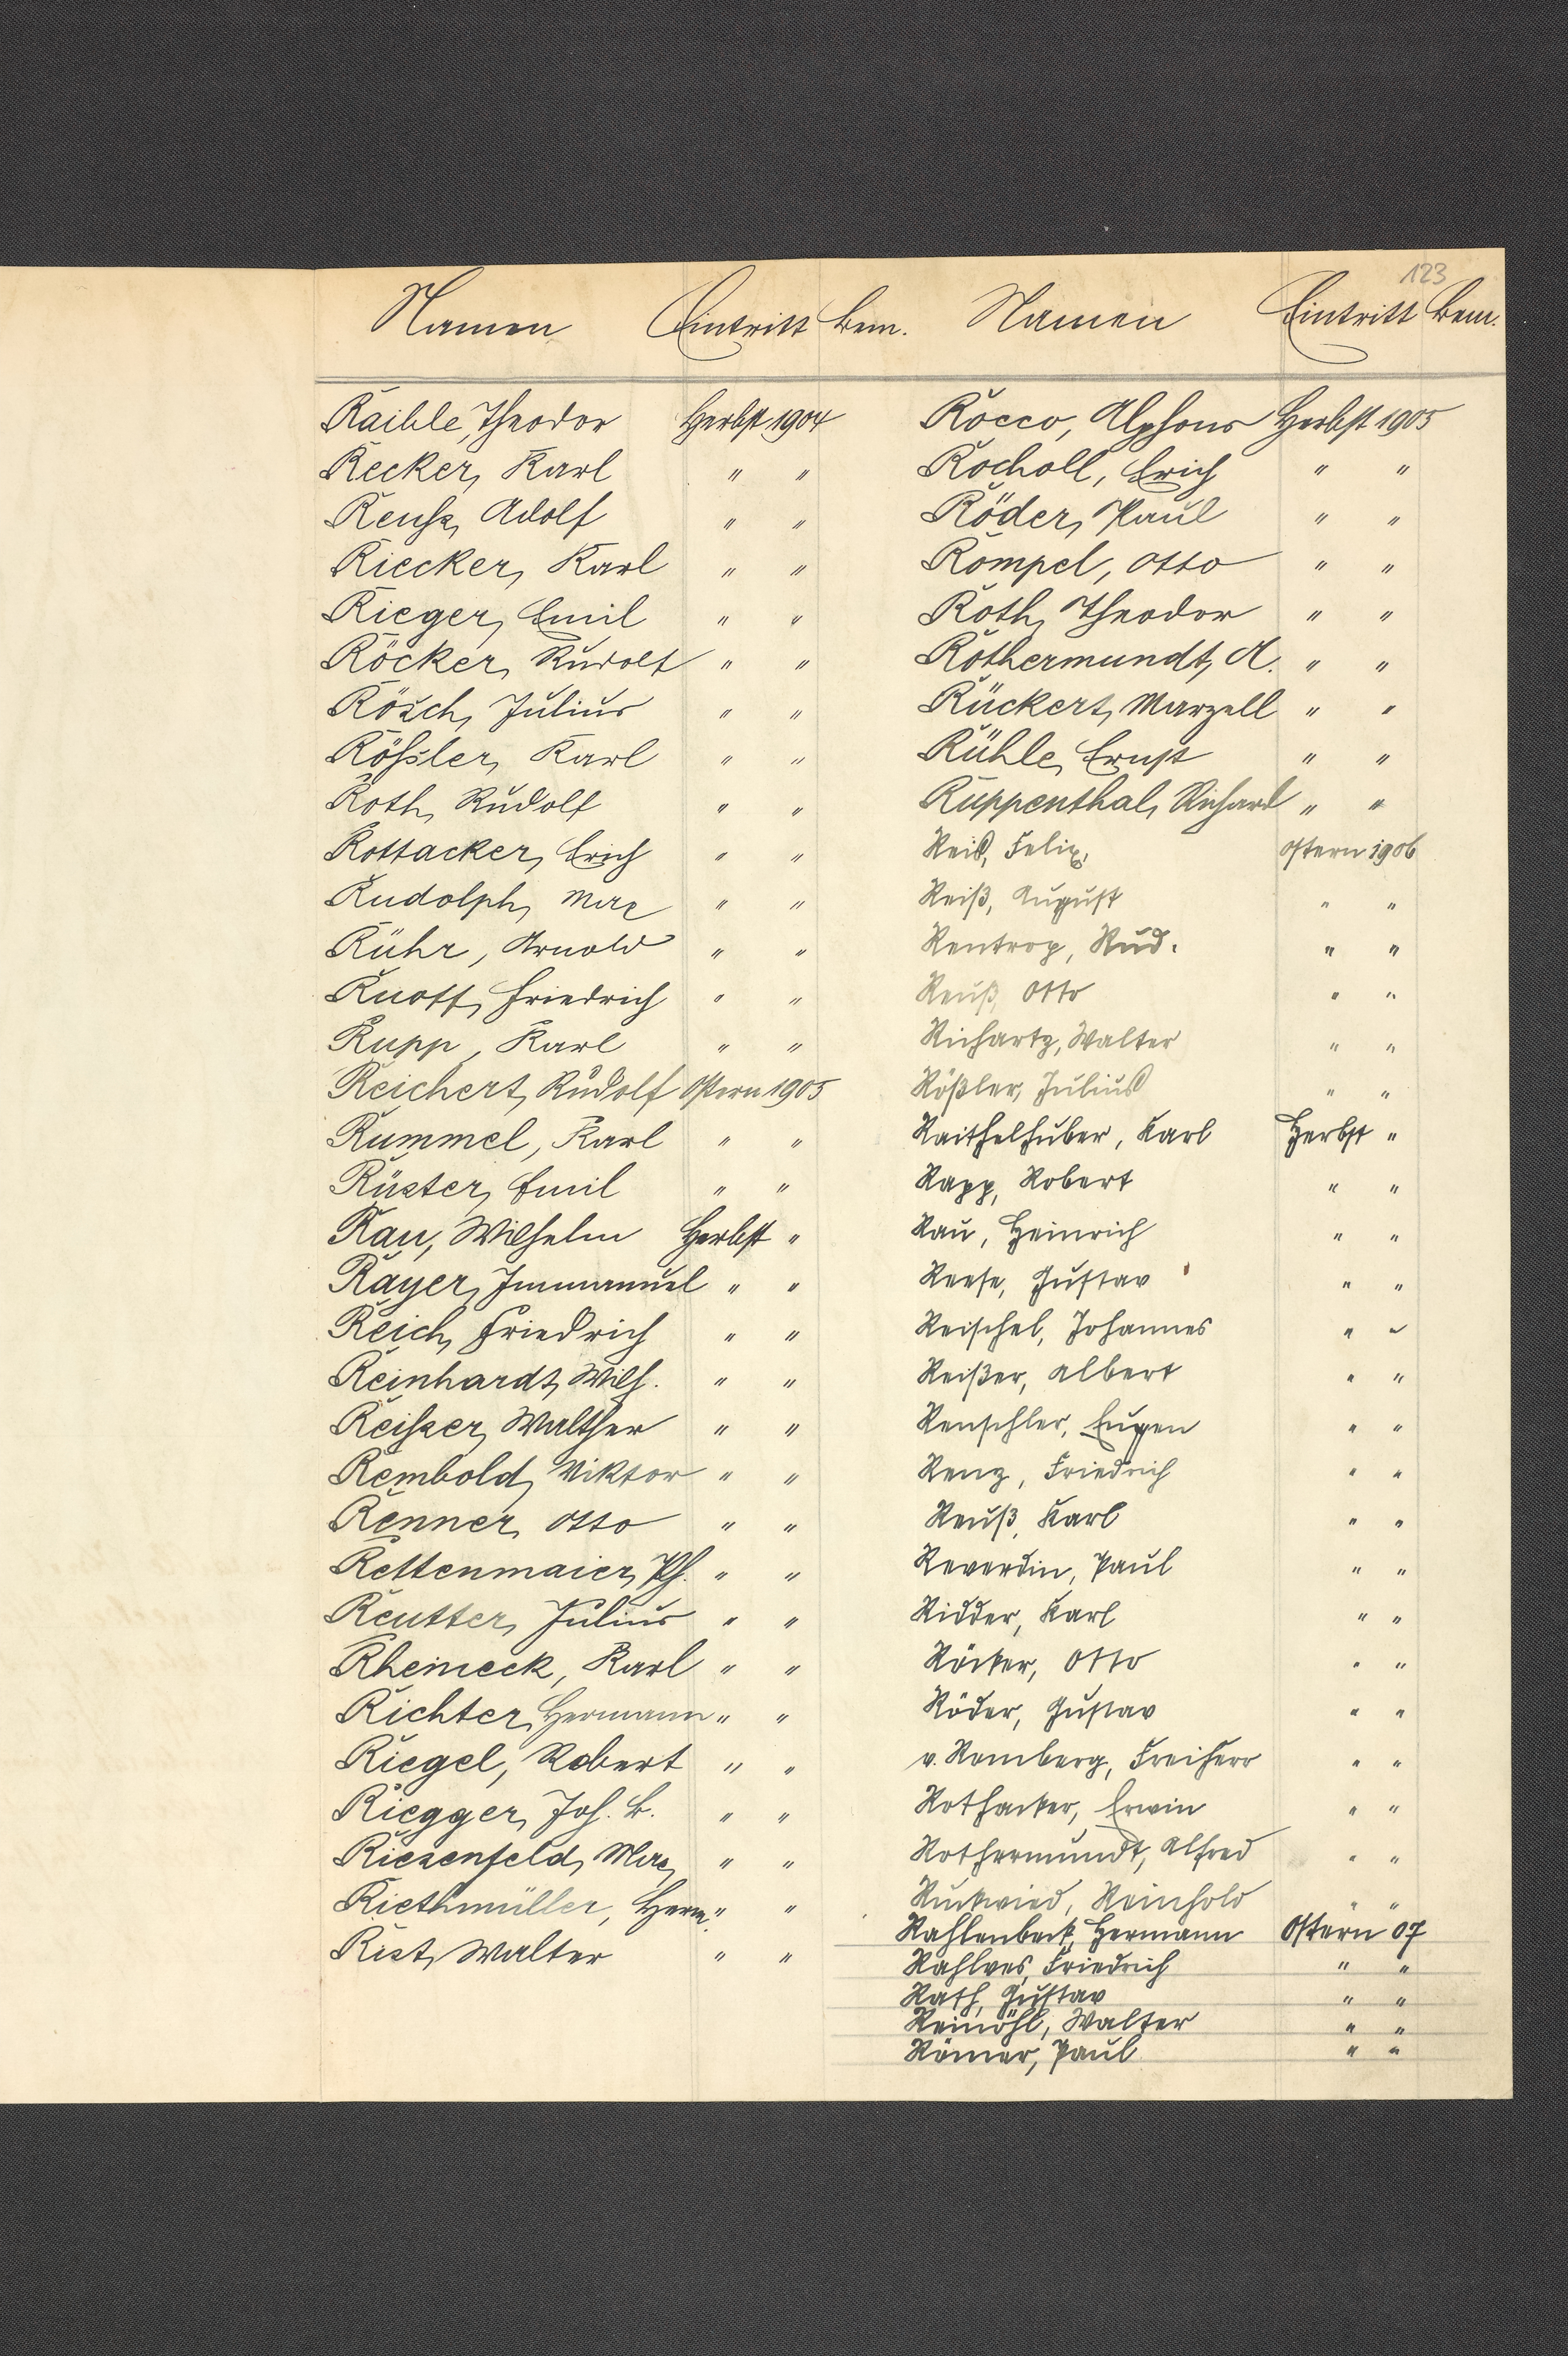 123
Namen Eintritt Bem.
Raible, Theodor Herbst 1904
Recker, Karl " "
Reusz, Adolf " "
Riecker, Karl " "
Rieger, Emil " "
Röcker, Rudolf " "
Rösch, Julius " "
Rößler, Karl " "
Roth, Rudolf " "
Rottacker, Erich " "
Rudolph, Max " "
Rühr, Arnold " "
Ruoff, Friedrich " "
Rupp, Karl " "
Reichert, Rudolf Ostern 1905
Rummel, Karl " "
Rüster, Emil " "
Rau, Wilhelm Herbst "
Rayer, Immanuel " "
Reich, Friedrich " "
Reinhardt, Wilh. " "
Reiszer, Walther " "
Rembold, Viktor " "
Renner, Otto " "
Rettenmaier, Ph. " "
Reutter, Julius " "
Rheineck, Karl " "
Richter, Hermann " "
Riegel, Robert " "
Riegger, Joh. B. " "
Riesenfeld, Max " "
Riethmüller, Herm. " "
Rist, Walter " "
Namen Eintritt Bem.
Rocco, Alphons Herbst 1905
Rocholl, Erich " "
Röder, Paul " "
Römpel, Otto " "
Roth, Theodor " "
Rothermundt, A. " "
Rückert, Marzell " "
Rühle, Ernst " "
Ruppenthal, Richard " "
Reis, Felix, Ostern 1906
Reiß, August " "
Rentrop, Rud. " "
Reuß, Otto " "
Richartz, Walter " "
Rößler, Julius " "
Raithelhuber, Karl Herbst "
Rapp, Robert " "
Rau, Heinrich " "
Reese, Gustav " "
Reischel, Johannes " "
Reißer, Albert " "
Renschler, Eugen " "
Renz, Friedrich " "
Reuß, Karl " "
Reverdin, Paul " "
Ridder, Karl " "
Röcker, Otto " "
Röder, Gustav " "
v. Romberg, Freiherr " "
Rothacker, Erwin " "
Rothermundt, Alfred " "
Ruckwied, Reinhold " "
Rahlenbeck, Hermann Ostern 07
Rahlves, Friedrich " "
Rath, Gustav " "
Reinöhl, Walter " "
Römer, Paul " "